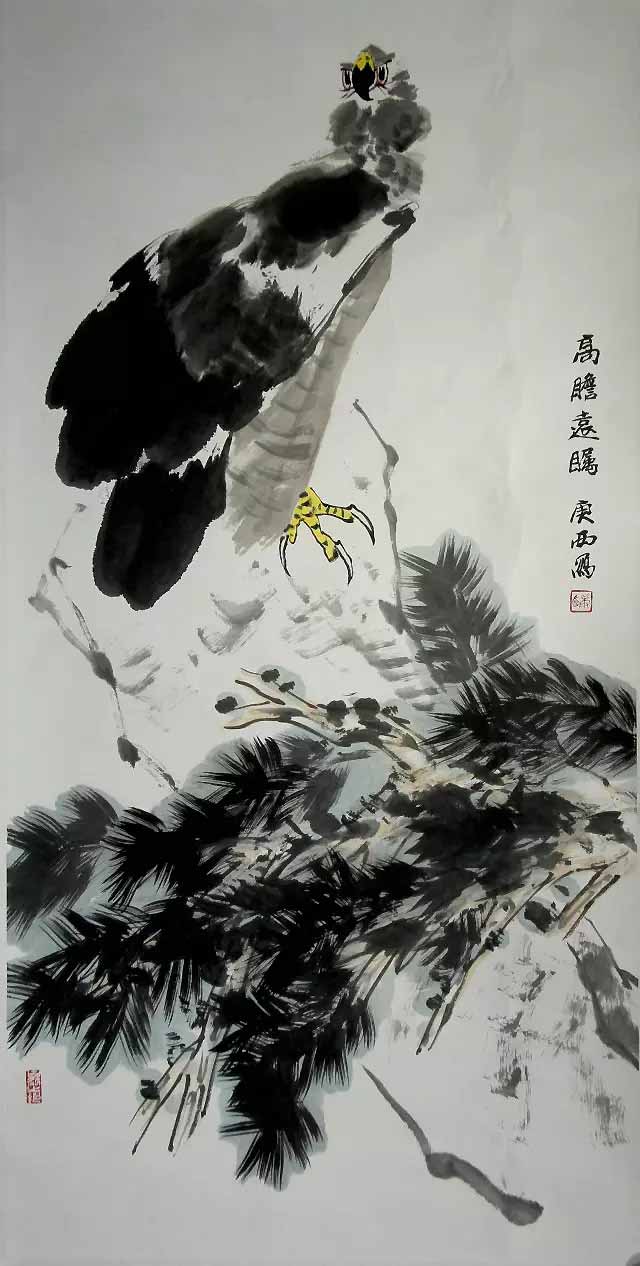 高瞻遠瞩 庚西寫